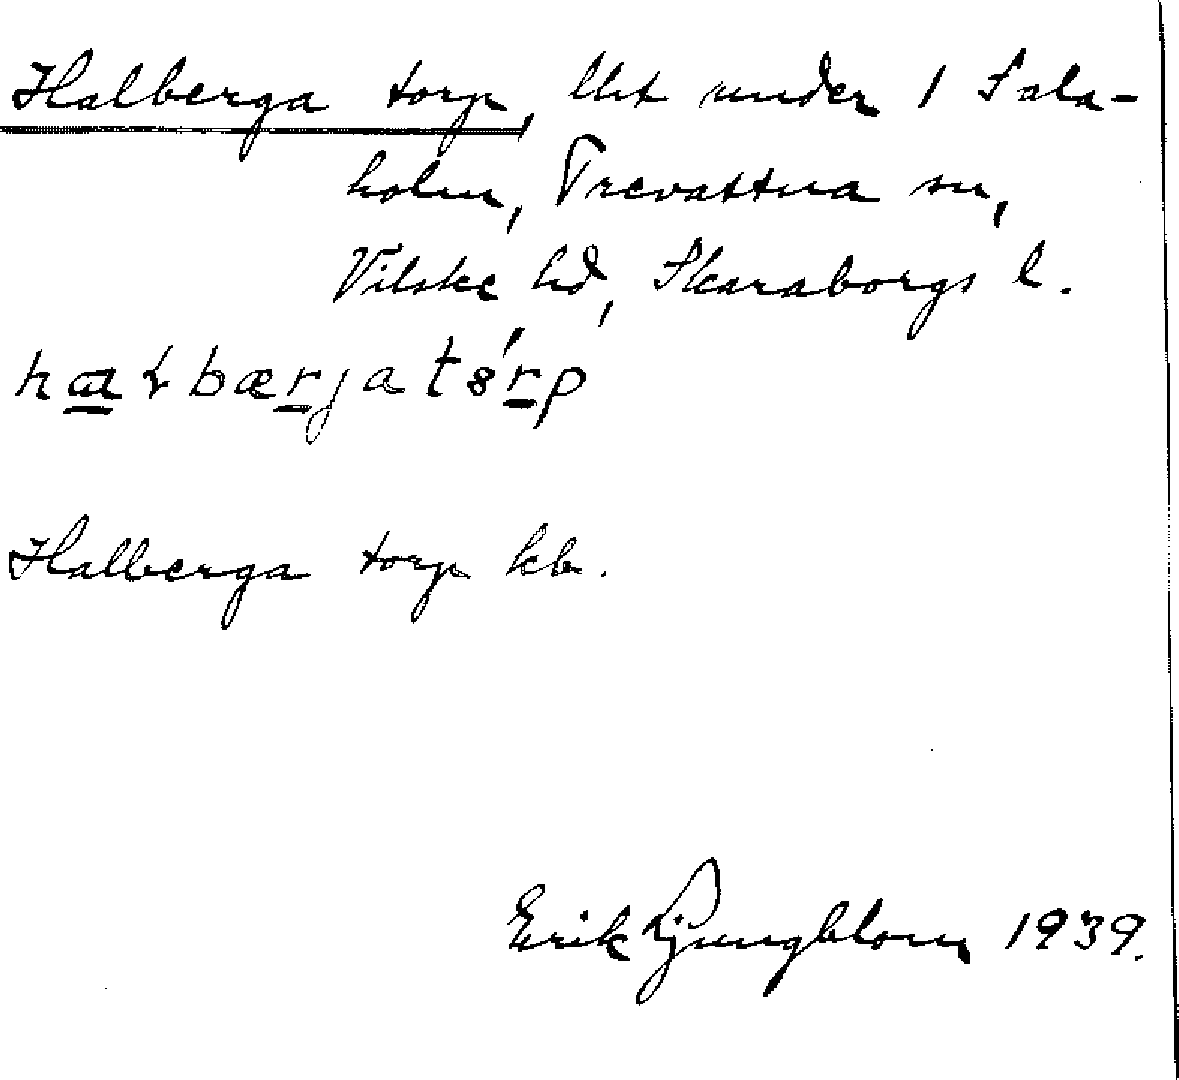 Halberga torp, lht under 1 Sala-
holm, Trevattna sn,
Vilske hd, Skaraborgs l.
Halberga torp kb.
Erik Ljungblom 1939.